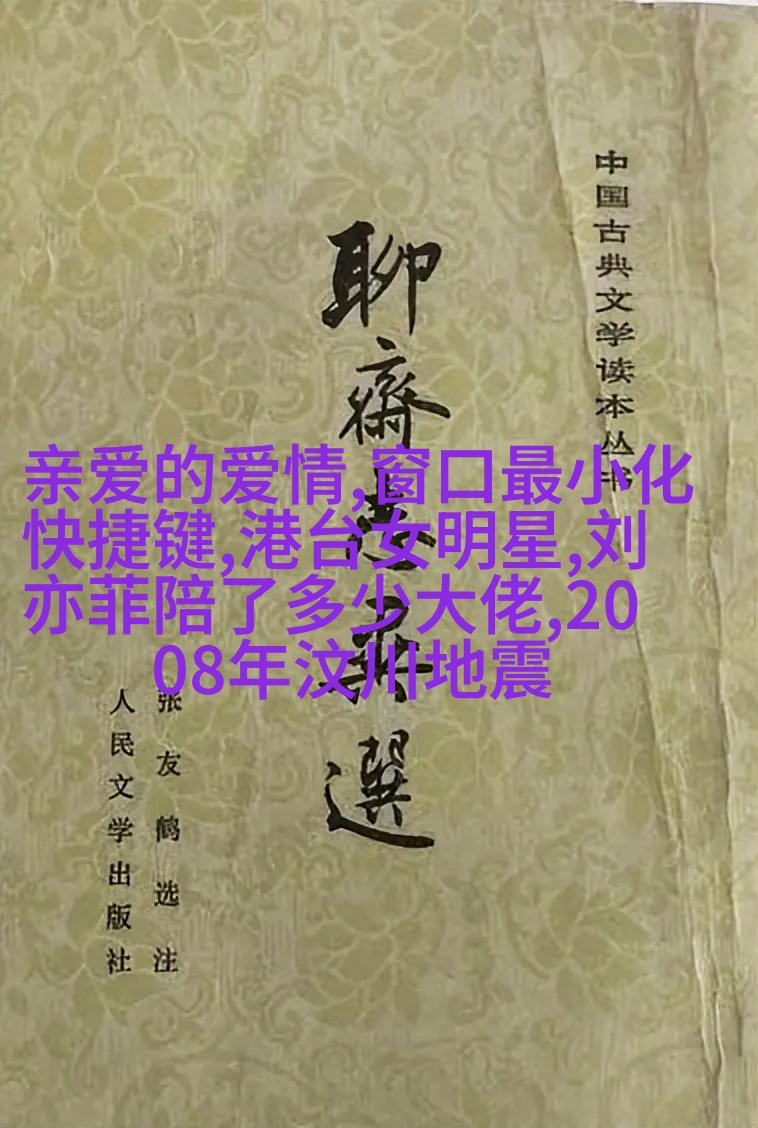 中国古典文学读本丛书
聊齋志異選
张友鹤选注
人民文学出版社
亲爱的爱情,窗口最小化
快捷键,港台女明星,刘
亦菲陪了多少大佬,20
08年汶川地震